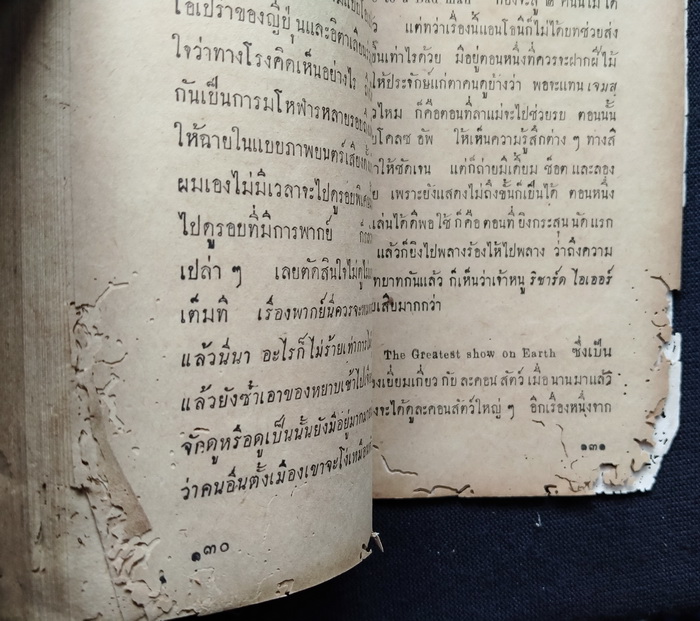 โอเปร่าของญี่ปุ่นและอิตาเลียน
ใจว่าทางโรงคิดเห็นอย่างไร
กันเป็นการมโหฬารหลายรอย
ให้ฉายในแบบภาพยนตร์เสียง
ผมเองไม่มีเวลาจะไปดูรอบ
ไปดูรอบที่มีการพากย์
เปล่า ๆ เลยตัดสินใจไม่ดู
เต็มที เรื่องพากย์นี่ควรจะ
แล้วนี่นา อะไรก็ไม่ร้ายเท่าการ
แล้วยังซ้ำเอาของหยาบเข้าไป
จักดูหรือดูเป็นนั้นยังมีอยู่มาก
ว่าคนอื่นตั้งเมืองเขาจะโง่เหมือน
๑๓๐
แต่ทว่าเรื่องนี้แอนโธนีก็ไม่ได้บทช่วยส่ง
เท่าไรด้วย มีอยู่ตอนหนึ่งที่ควรจะฝากฝีไม้
ให้ประจักษ์แก่ตาคนดูบ้างว่า พอจะแทน เจมส
ไหม ก็คือตอนที่ลาแม่จะไปช่วยรบ ตอนนั้น
โคลซ อัพ ให้เห็นความรู้สึกต่าง ๆ ทางสี
ให้ชัดเจน แต่ก็ถ่ายมีเดี้ยม ช็อต และลอง
เพราะยังแสดงไม่ถึงขั้นก็เป็นได้ ตอนหนึ่ง
เล่นได้ดีพอใช้ ก็คือ ตอนที่ ยิงกระสุน นัด แรก
แล้วก็ยิงไปพลางร้องไห้ไปพลาง ว่าถึงความ
ทยาทกันแล้ว ก็เห็นว่าเจ้าหนู ริชาร์ด ไอเออร์
เสียมากกว่า
The Greatest show on Earth ซึ่งเป็น
เยี่ยมเกี่ยว กับ ละคอน สัตว์ เมื่อ นาน มา แล้ว
จะได้ดูละคอนสัตว์ใหญ่ ๆ อีกเรื่องหนึ่งจาก
๑๓๑